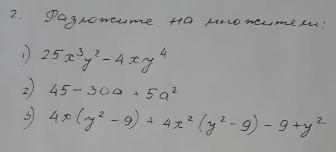 2. Разложите на множители:
1) 25x³y² - 4xy⁴
2) 45 - 30a + 5a²
3) 4x(y² - 9) + 4x²(y² - 9) - 9 + y²